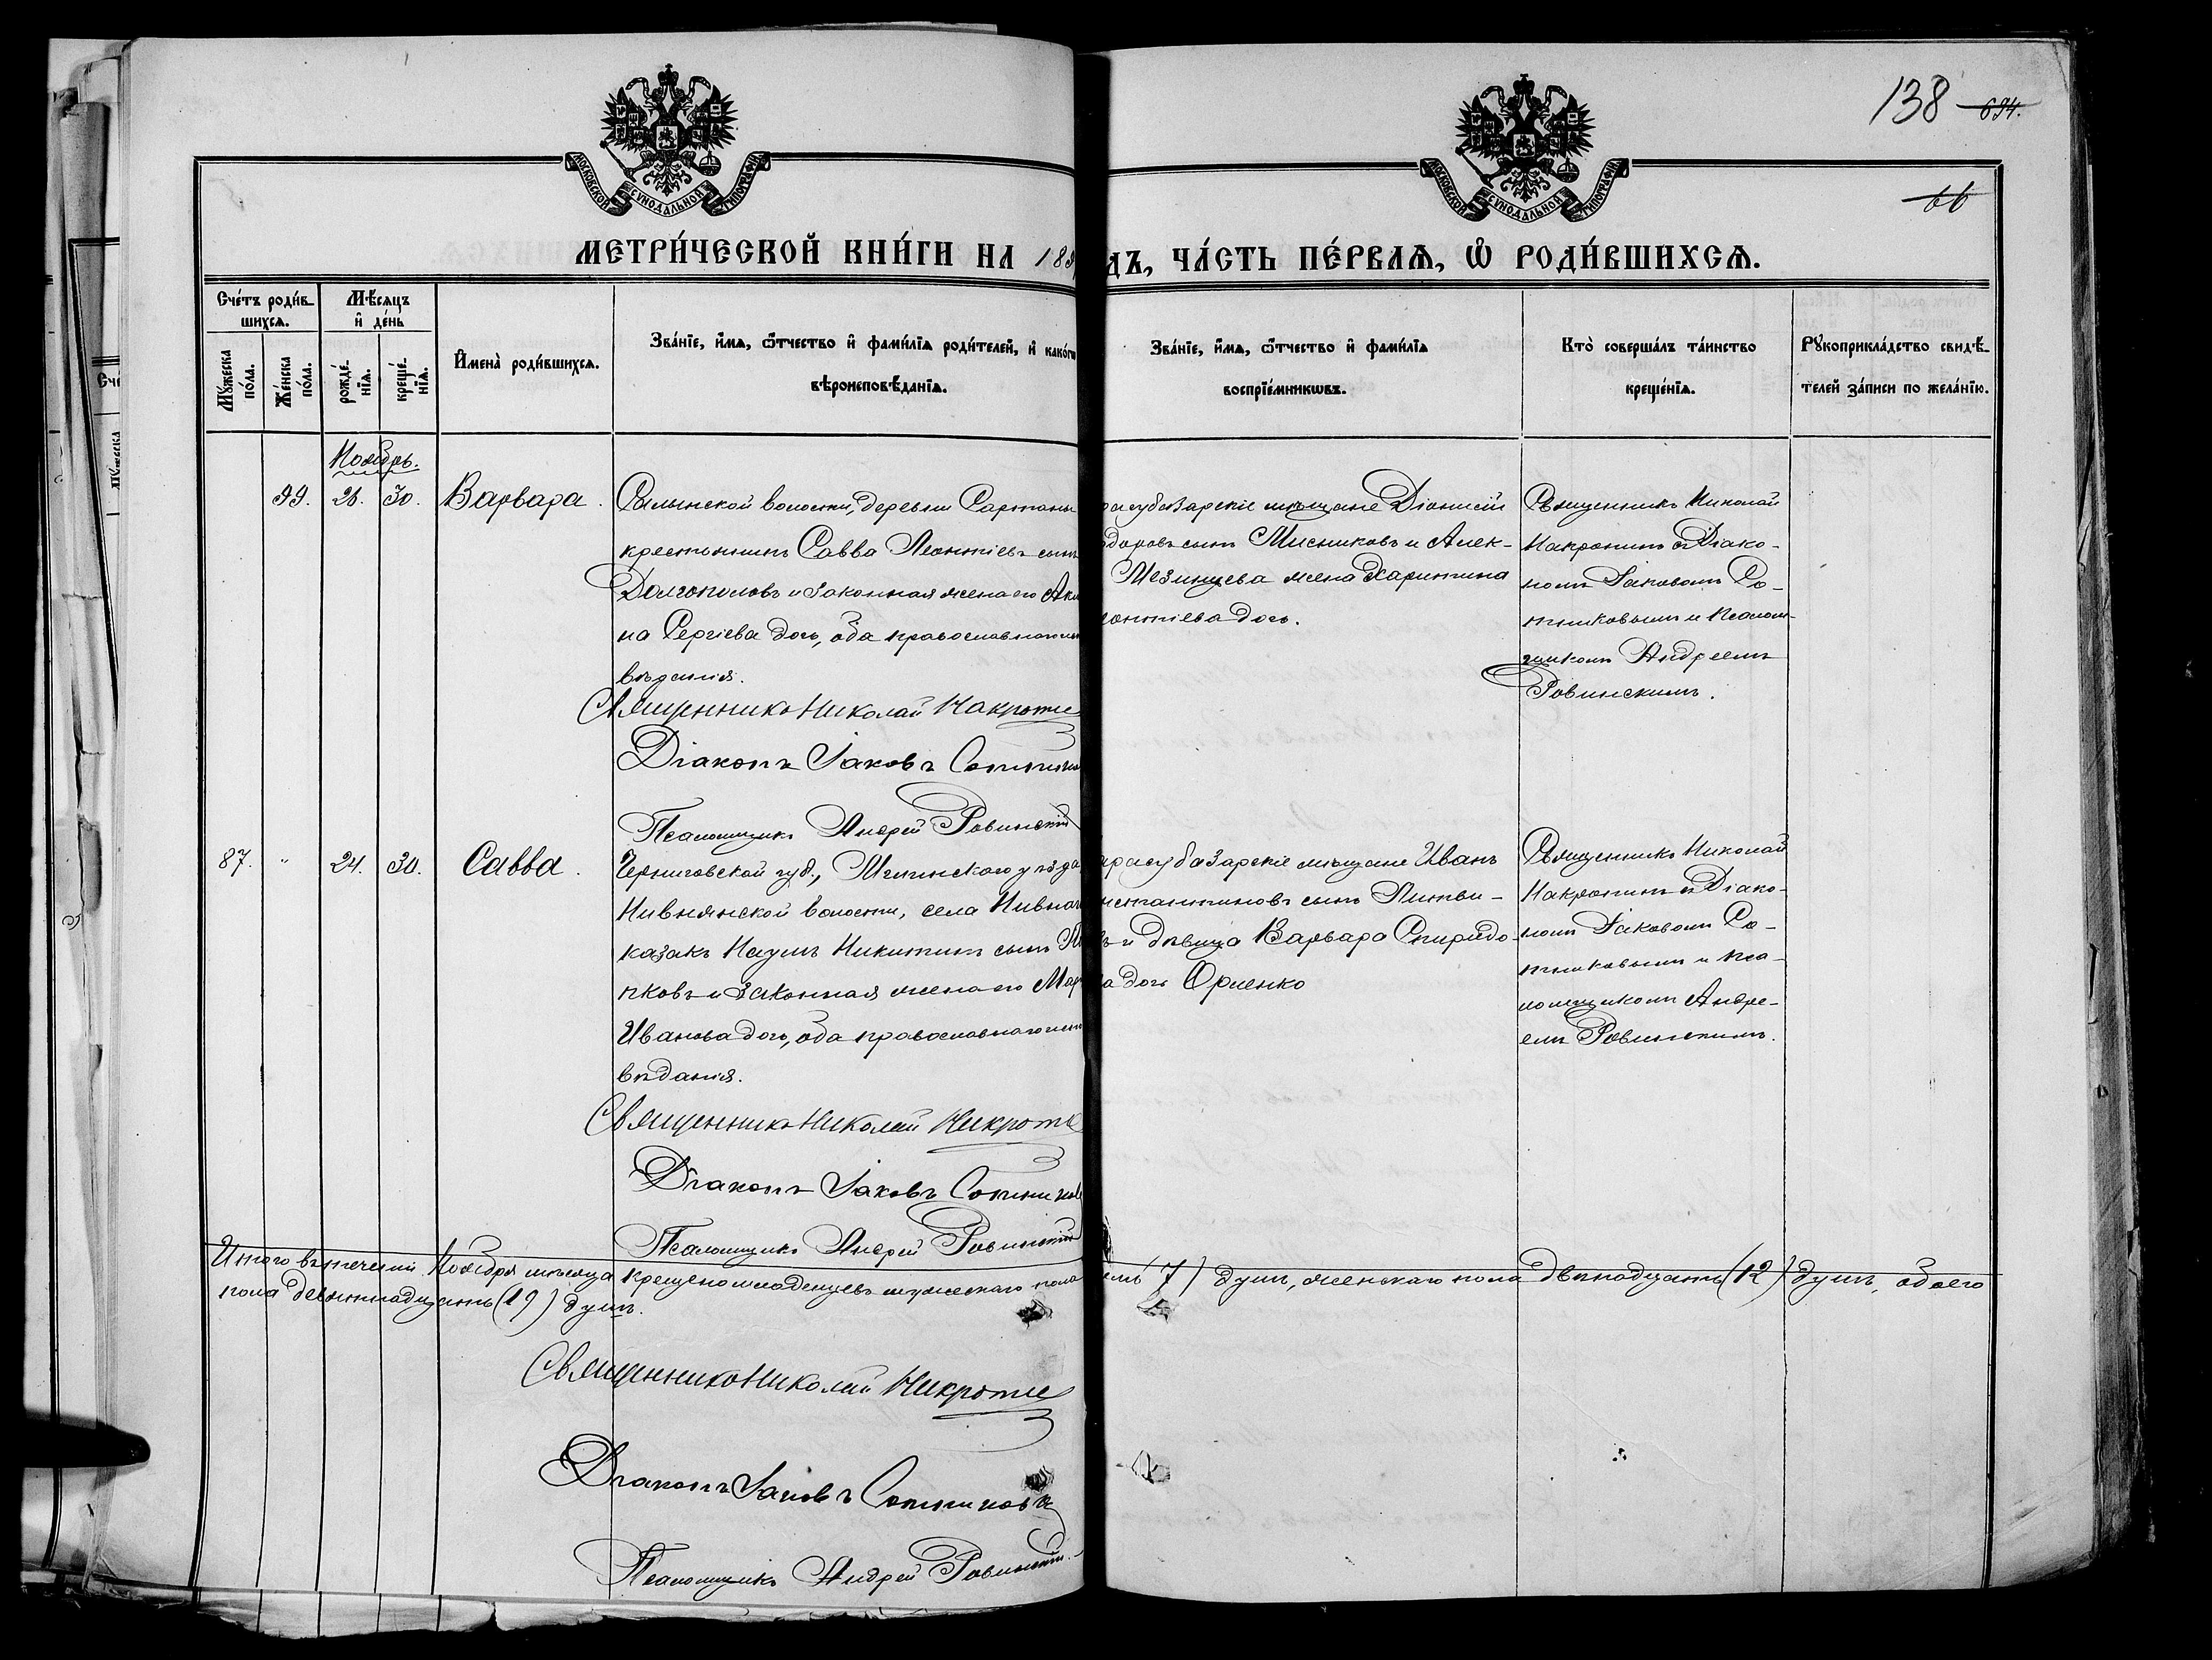 138 694.
66
МОСКОВСКОЙ СѴНОДАЛЬНОЙ ТИПОГРАФІИ
МОСКОВСКОЙ СѴНОДАЛЬНОЙ ТИПОГРАФІИ
МЕТРИ́ЧЕСКОЙ КНИ́ГИ НА 189
ДЪ, ЧА́СТЬ ПЕ́РВАѦ, Ѡ РОДИ́ВШИХСѦ.
Сче́тъ роди́в-
шихсѧ.
Мꙋ́жеска
по́ла.
Же́нска
по́ла.
Мѣ́сѧцъ
и де́нь
рожде́-
нїѧ.
креще́-
нїѧ.
Имена̀ роди́вшихсѧ.
Зва́нїе, и́мѧ, ѻ҆́тчество и фами́лїѧ роди́телей, и како́гѡ
вѣроисповѣ́данїѧ.
Зва́нїе, и́мѧ, ѻ҆́тчество и фами́лїѧ
воспрїе́мникѡвъ.
Кто̀ соверша́лъ та́инство
креще́нїѧ.
Рꙋкоприкла́дство свидѣ́-
телей за́писи по жела́нїю.
Ноябрь.
99. 26. 30. Варвара.
волости, деревни Сартаны
крестьянинъ Савва Леонтіевъ сынъ
Долгополовъ и законная жена его
на Сергіева дочь, оба православнаго
вѣданія.
Священникъ Николай
Діаконъ Іаковъ Сотник
Псаломщикъ Андрей Ровинскій
расубазарскіе мѣщане Діонисій
доровъ сынъ Мисниковъ и Алек-
Мезинцева жена Харитина
онтіева дочь.
Священникъ Николай
Макротинъ съ Діако-
номъ Іаковомъ Со-
тниковымъ и Псалом-
щикомъ Андреемъ
Ровинскимъ.
87. " 24. 30. Савва.
Черниговской губ., Мглинскаго уѣзда
Нивнянской волости, села Нивна
казакъ Наумъ Никитинъ сынъ
пковъ и законная жена его Мар
Иванова дочь, оба православнаго исп
вѣданія.
Священникъ Николай
Діаконъ Іаковъ Сотников
Псаломщикъ Андрей Ровинскій
расубазарскіе мѣщане Иванъ
нстантиновъ сынъ Литви-
въ и дѣвица Варвара Спиридо-
ва дочь Орленко
Священникъ Николай
Макротинъ съ Діако-
номъ Іаковомъ Со-
тниковымъ и пса-
ломщикомъ Андре-
емъ Ровинскимъ.
Итого въ теченіи Ноября мѣсяца крещено младенцевъ мужескаго пола
емь 7) душъ, женскаго пола двѣнадцать (12) душъ, обоего
пола девятнадцать (19) душъ.
Священникъ Николай
Діаконъ Іаковъ Сотниковъ
Псаломщикъ Андрей Ровинскій.